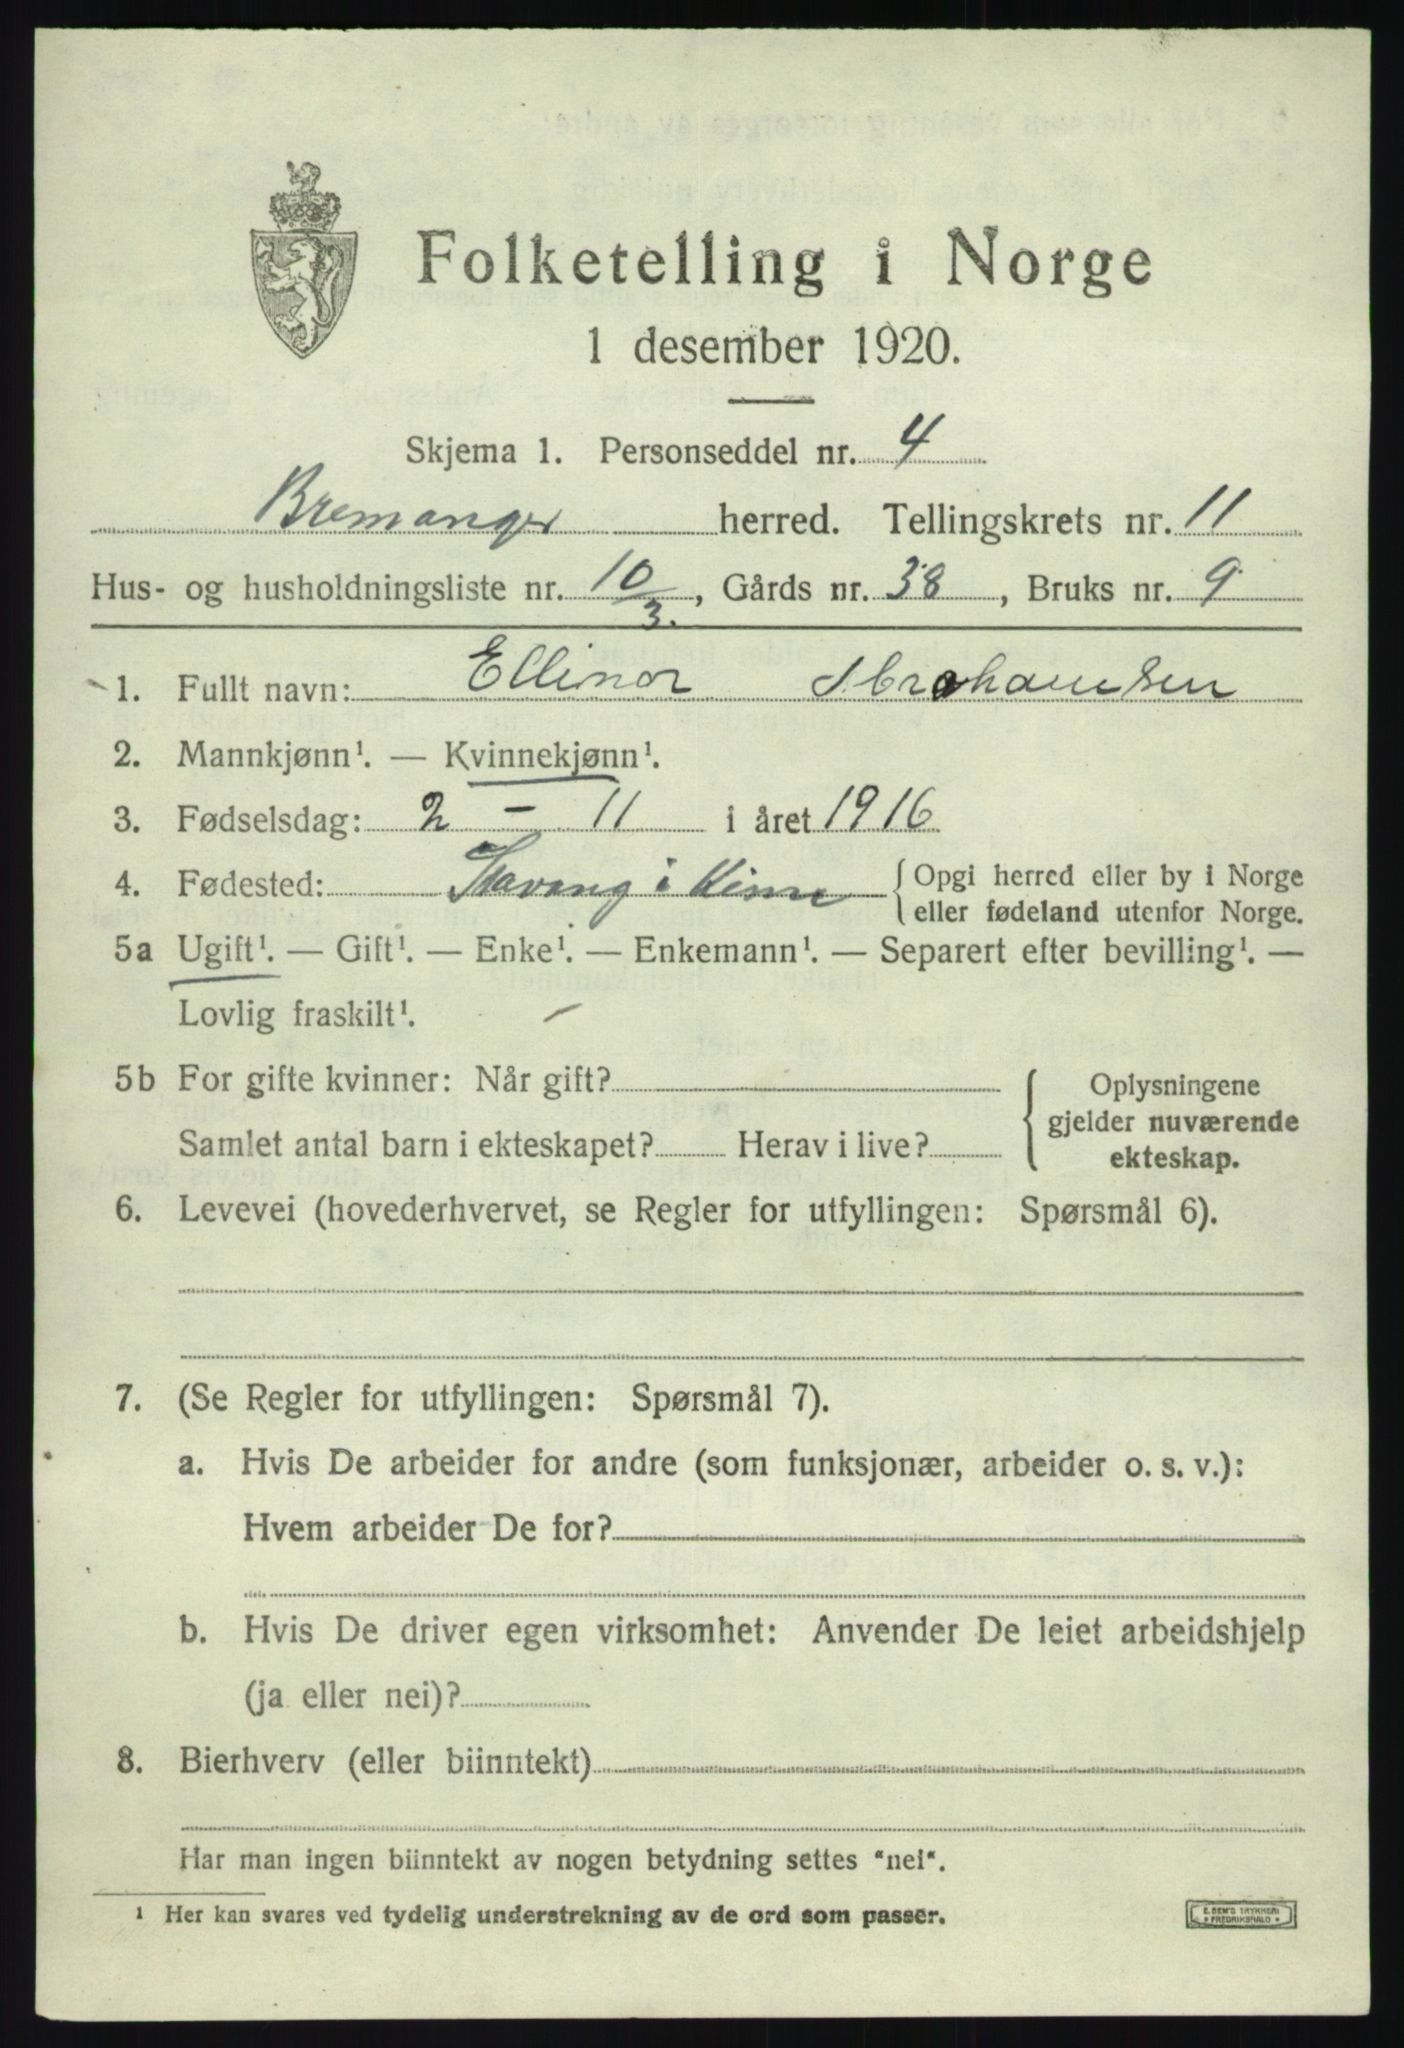 Folketelling i Norge
1 desember 1920.
Skjema 1. Personseddel nr. 4
Bremanger herred. Tellingskrets nr. 11
Hus- og husholdningsliste nr. 10/3., Gårds nr. 38, Bruks nr. 9
1. Fullt navn: Ellinor Abrahamsen
2. Mannkjønn¹. — Kvinnekjønn¹.
3. Fødselsdag: 2 - 11 i året 1916
4. Fødested: Stavang i Kinn { Opgi herred eller by i Norge
eller fødeland utenfor Norge.
5a Ugift¹. — Gift¹. — Enke¹. — Enkemann¹. — Separert efter bevilling¹. —
Lovlig fraskilt¹. –
5b For gifte kvinner: Når gift? { Oplysningene
gjelder nuværende
Samlet antal barn i ekteskapet? Herav i live?
ekteskap.
6. Levevei (hovederhvervet, se Regler for utfyllingen: Spørsmål 6).
7. (Se Regler for utfyllingen: Spørsmål 7).
a. Hvis De arbeider for andre (som funksjonær, arbeider o. s. v.):
Hvem arbeider De for?
b. Hvis De driver egen virksomhet: Anvender De leiet arbeidshjelp
(ja eller nei)?
8. Bierhverv (eller biinntekt)
Har man ingen biinntekt av nogen betydning settes "nei".
¹ Her kan svares ved tydelig understrekning av de ord som passer.
E. SEM'S TRYKKERI
* FREDRIKSHALD *